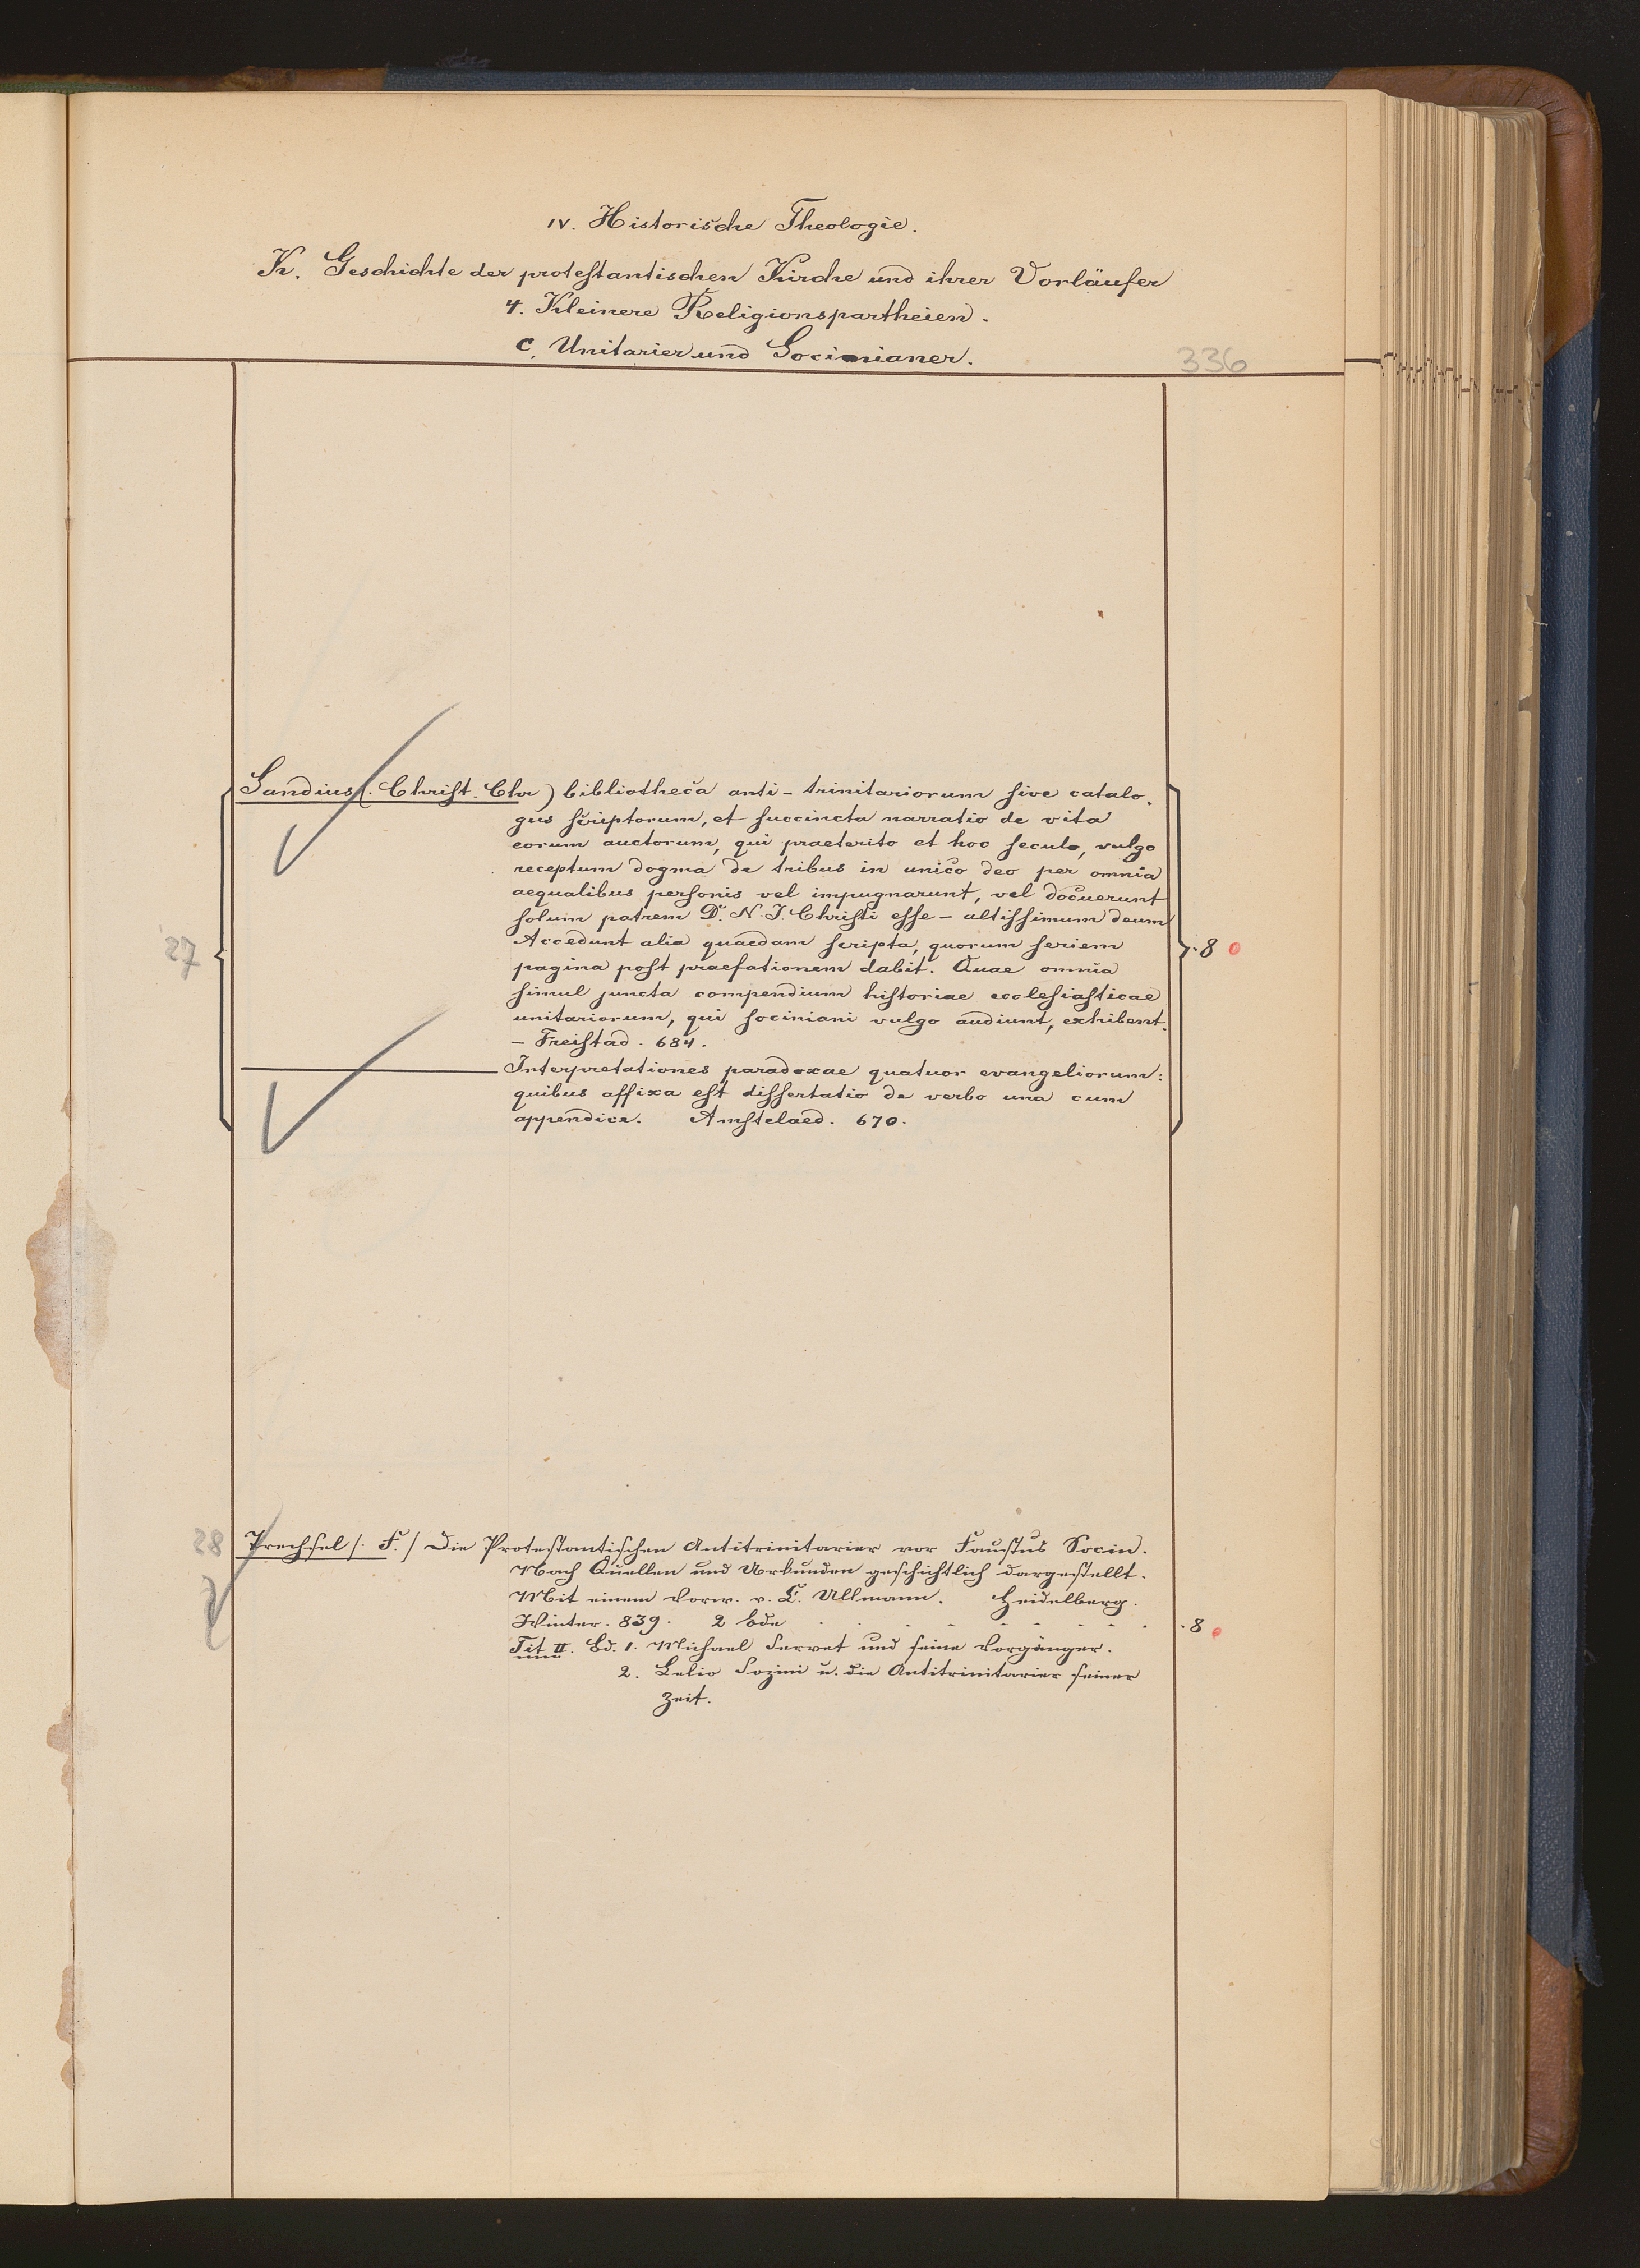 IV. Historische Theologie.
K. Geschichte der protestantischen Kirche und ihrer Vorläufer
4. Kleinere Religionspartheien.
c. Unitarier und Socinianer.
336
Sandius (. Christ. Chr) bibliotheca anti-trinitariorum sive catalo-
gus scriptorum, et succincta narratio de vita
eorum auctorum, qui praeterito et hoc seculo, vulgo
receptum dogma de tribus in unico deo per omnia
aequalibus personis vel impugnarunt, vel docuerunt
solum patrem D. N. J. Christi esse - altissimum deum
Accedunt alia quaedam scripta, quorum seriem
27
8
pagina post praefationem dabit. Quae omnia
simul juncta compendium historiae ecclesiasticae
unitariorum, qui sociniani vulgo audiunt, exhibent.
- Freistad. 684.
Interpretationes paradoxae quatuor evangeliorum:
quibus affixa est dissertatio de verbo una cum
appendice. Amstelaed. 670.
28
Trechsel /. F. / Die Protestantischen Antitrinitarier vor Faustus Socin.
Nach Quellen und Urkunden geschichtlich dargestellt.
Mit einem Vorw. v. C. Ullmann. Heidelberg.
Winter. 839. 2 Bde . . . . . . . . 8
Tit II. Bd. 1. Michael Servet und seine Vorgänger.
2. Lelio Sozini u. die Antitrinitarier seiner
Zeit.